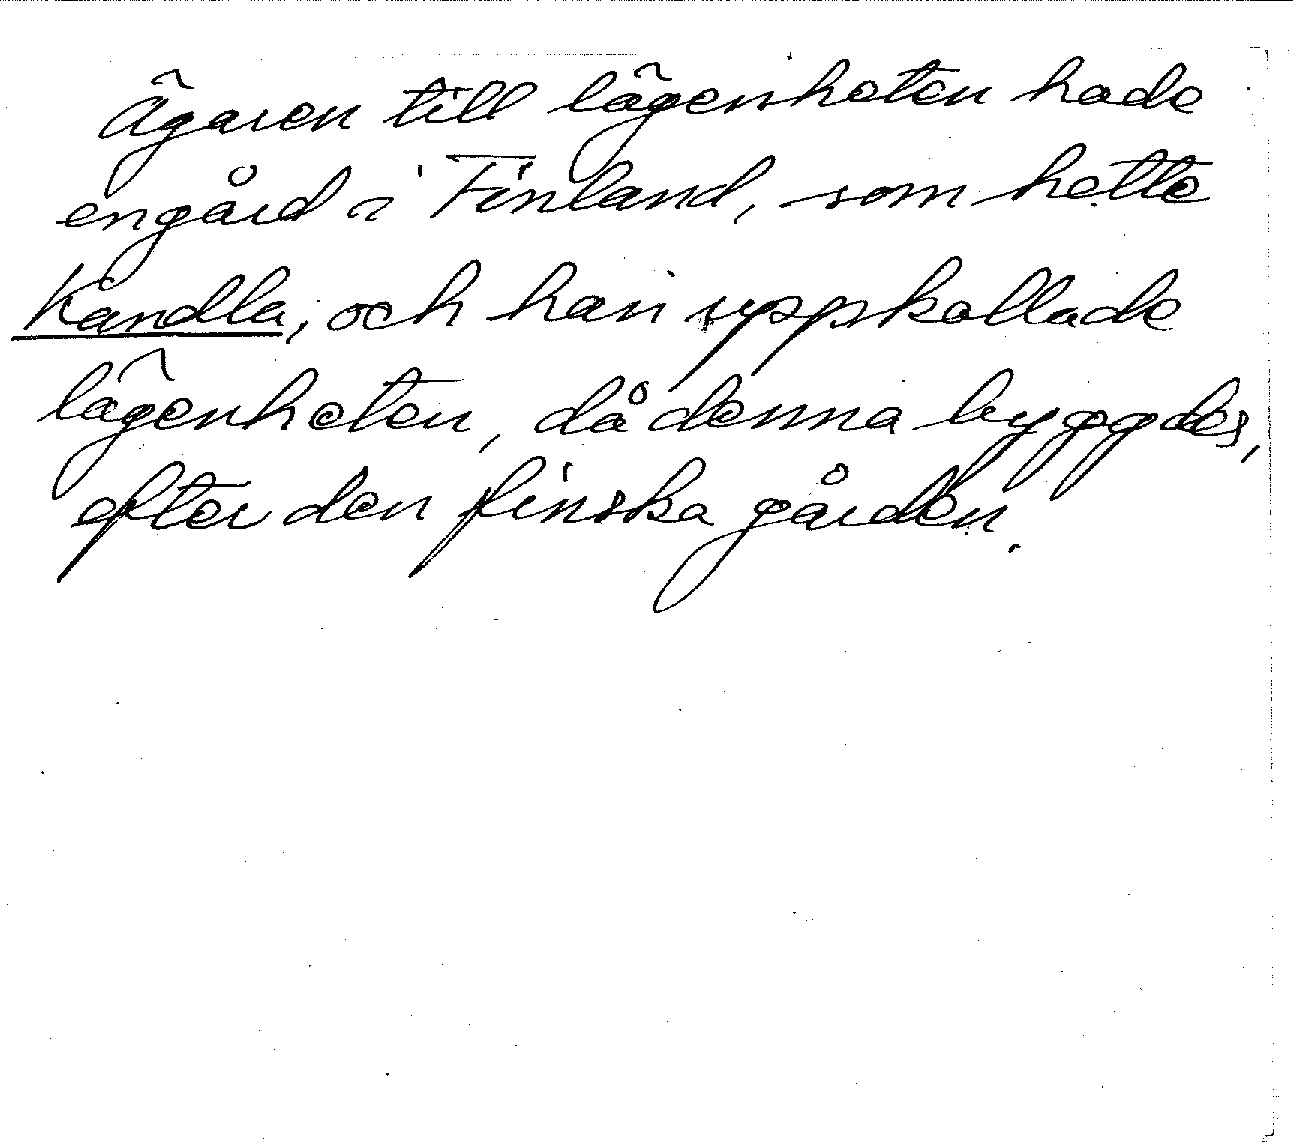 Ägaren till lägenheten hade
en gård i Finland, som hette
Kandla, och han uppkallade
lägenheten, då denna byggdes,
efter den finska gården.